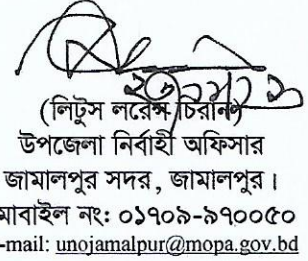 (লিটুস লরেন্স চিরান)
উপজেলা নির্বাহী অফিসার
জামালপুর সদর, জামালপুর।
মাবাইল নং: ০১৭০৯-৯৭০০৫০
-mail: unojamalpur@mopa.gov.bd